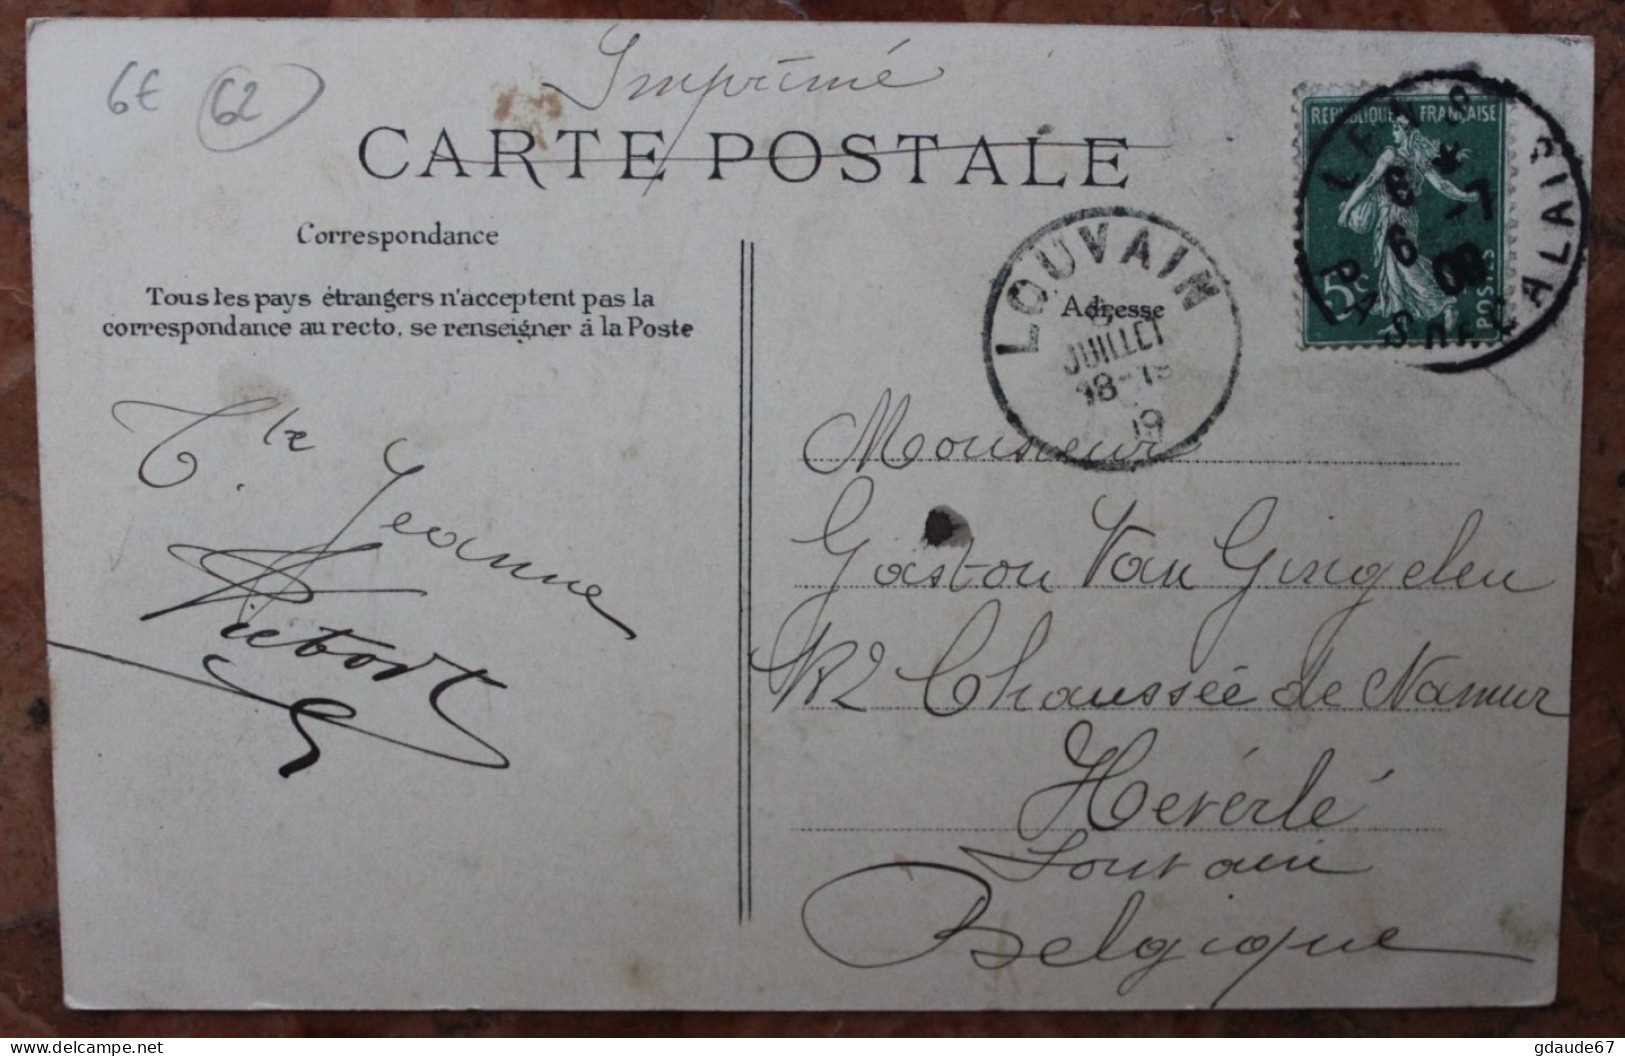 6€ 62
Imprimé
CARTE POSTALE
REPUBLIQUE FRANÇAISE
5c POSTES
LENS
6 6 -7 09
PAS DE CALAIS
Correspondance
Tous les pays étrangers n'acceptent pas la
correspondance au recto, se renseigner à la Poste
LOUVAIN
JUILLET
18-19
19
Adresse
Jeanne
Monsieur
Gaston Van Gingelen
Chaussée de Namur
Hévérlé
Louvain
Belgique
delcampe.net
gdaude67